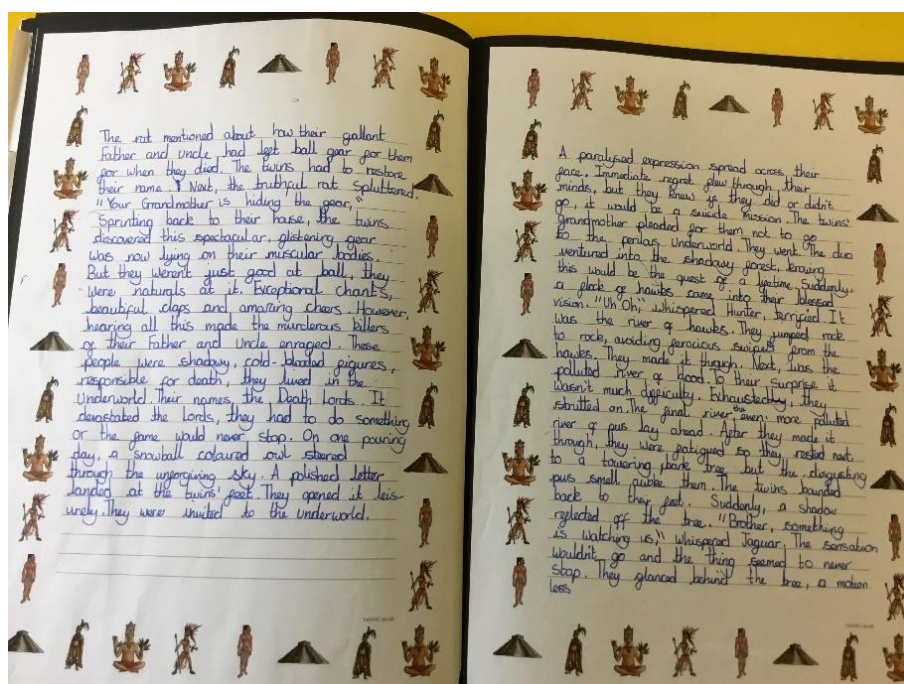 The rat mentioned about how their gallant
Father and uncle had left ball gear for them
for when they died. The twins had to restore
their name. Next, the truthful rat spluttered,
"Your Grandmother is hiding the gear,"
Sprinting back to their house, the twins
discovered this spectacular, glistening gear
was now lying on their muscular bodies.
But they weren't just good at ball, they
were naturals at it. Exceptional chants,
beautiful claps and amazing cheers. However,
hearing all this made the murderous killers
of their Father and Uncle enraged. These
people were shadowy, cold-blooded figures,
responsible for death, they lived in the
Underworld. Their names, the Death Lords. It
devastated the Lords, they had to do something
or the game would never stop. On one pouring
day, a snowball coloured owl steered
through the unforgiving sky. A polished letter
landed at the twins' feet. They opened it leis-
urely. They were invited to the underworld.
A paralysed expression spread across their
face. Immediate regret flew through their
minds, but they knew if they did or didn't
go, it would be a suicide mission. The twins'
grandmother pleaded for them not to go
to the perilous Underworld. They went. The duo
ventured into the shadowy forest, knowing
this would be the quest of a lifetime. Suddenly,
a flock of hawks came into their blessed
vision. "Uh Oh," whispered Hunter, terrified It
was the river of hawks. They jumped rock
to rock, avoiding ferocious swipes from the
hawks. They made it through. Next, was the
polluted river of blood. To their surprise it
wasn't much difficulty. Exhaustedly, they
strutted on. The final river, the even more polluted
river of pus lay ahead. After they made it
through, they were fatigued so they rested next
to a towering, bark tree, but the disgusting
pus smell awoke them. The twins bounded
back to their feet. Suddenly, a shadow
reflected off the tree. "Brother, something
is watching us," whispered Jaguar. The sensation
wouldn't go and the thing seemed to never
stop. They glanced behind the tree, a motion
less